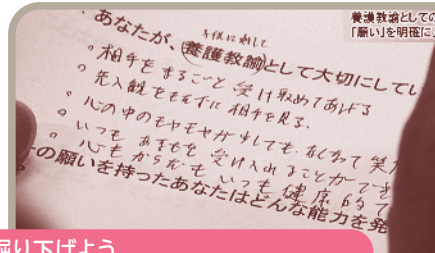 養護教諭としての
「願い」を明確に
あなたが、養護教諭として大切にしてい
子供に対して
相手をまるごと受け取めてあげる
先入観をもたずに相手を見る。
心の中のモヤモヤが少しでも なって笑
いつも を受け入れることができ
心もからだもいつも健康的で
の願いを持ったあなたはどんな能力を発
掘り下げよう